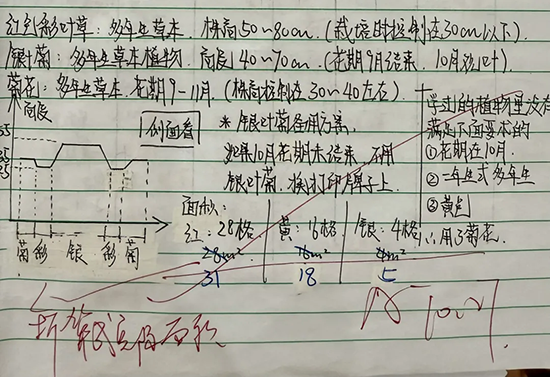 红彩叶草：多年生草本．株高50~80cm．（栽培时控制在30cm以下）．
银叶菊：多年生草本植物．高度40~70cm．（花期9月结束
菊花：多年生草本．花期9－11月．（株高控制在30~40左右）
高度
剖面看
＊银叶菊备用方案．
如果10月花期未结束．不用
银叶菊．换打印牌子上．
菊 彩 银 彩 菊
面积：
红：28格
黄：16格
银：4格
28m²
16m²
4m²
31
18
5
学过的植物里没有
满足下面要求的
①花期在10月．
②一年生或多年生
③黄色
∴用了菊花．